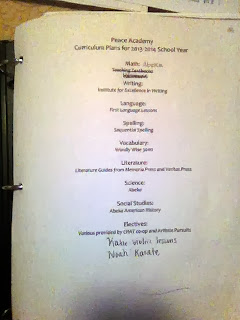 Peace Academy
Curriculum Plans for 2013-2014 School Year
Math: Abeka
Teaching Textbooks
Writing:
Institute for Excellence in Writing
Language:
First Language Lessons
Spelling:
Sequential Spelling
Vocabulary:
Wordly Wise 3000
Literature:
Literature Guides from Memoria Press and Veritas Press
Science:
Abeka
Social Studies:
Abeka American History
Electives:
Various provided by CHAT co-op and Artistic Pursuits
Katie violin lessons
Noah Karate